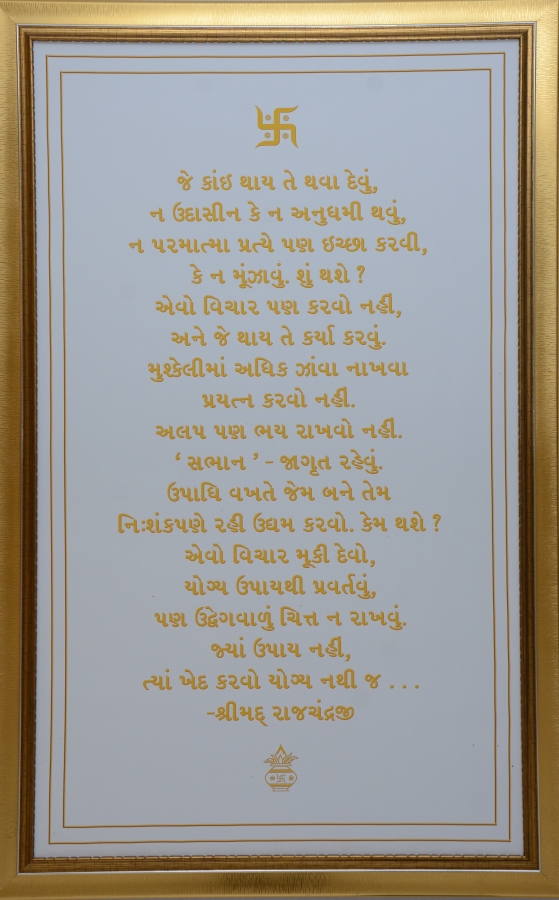 જે કાંઇ થાય તે થવા દેવું,
ન ઉદાસીન કે ન અનુઘમી થવું,
ન પરમાત્મા પ્રત્યે પણ ઇચ્છા કરવી,
કે ન મૂંઝાવું. શું થશે ?
એવો વિચાર પણ કરવો નહીં,
અને જે થાય તે કર્યા કરવું.
મુશ્કેલીમાં અધિક ઝાંવા નાખવા
પ્રયત્ન કરવો નહીં.
અલપ પણ ભય રાખવો નહીં.
‘ સભાન ’ - જાગૃત રહેવું.
ઉપાધિ વખતે જેમ બને તેમ
નિઃશંકપણે રહી ઉદ્યમ કરવો. કેમ થશે ?
એવો વિચાર મૂકી દેવો,
યોગ્ય ઉપાયથી પ્રવર્તવું,
પણ ઉદ્વેગવાળું ચિત્ત ન રાખવું.
જ્યાં ઉપાય નહીં,
ત્યાં ખેદ કરવો યોગ્ય નથી જ . . .
-શ્રીમદ્ રાજચંદ્રજી